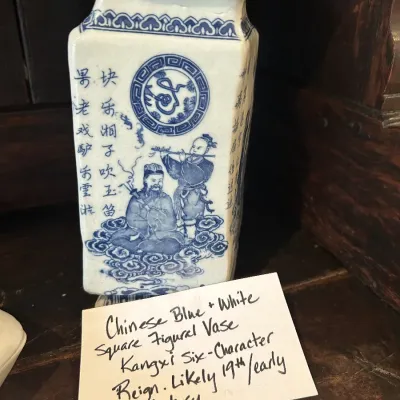 湘子吹玉笛
果老戏驴
Chinese Blue + White
Square Figural Vase
Kangxi Six-Character
Reign. Likely 19th/early